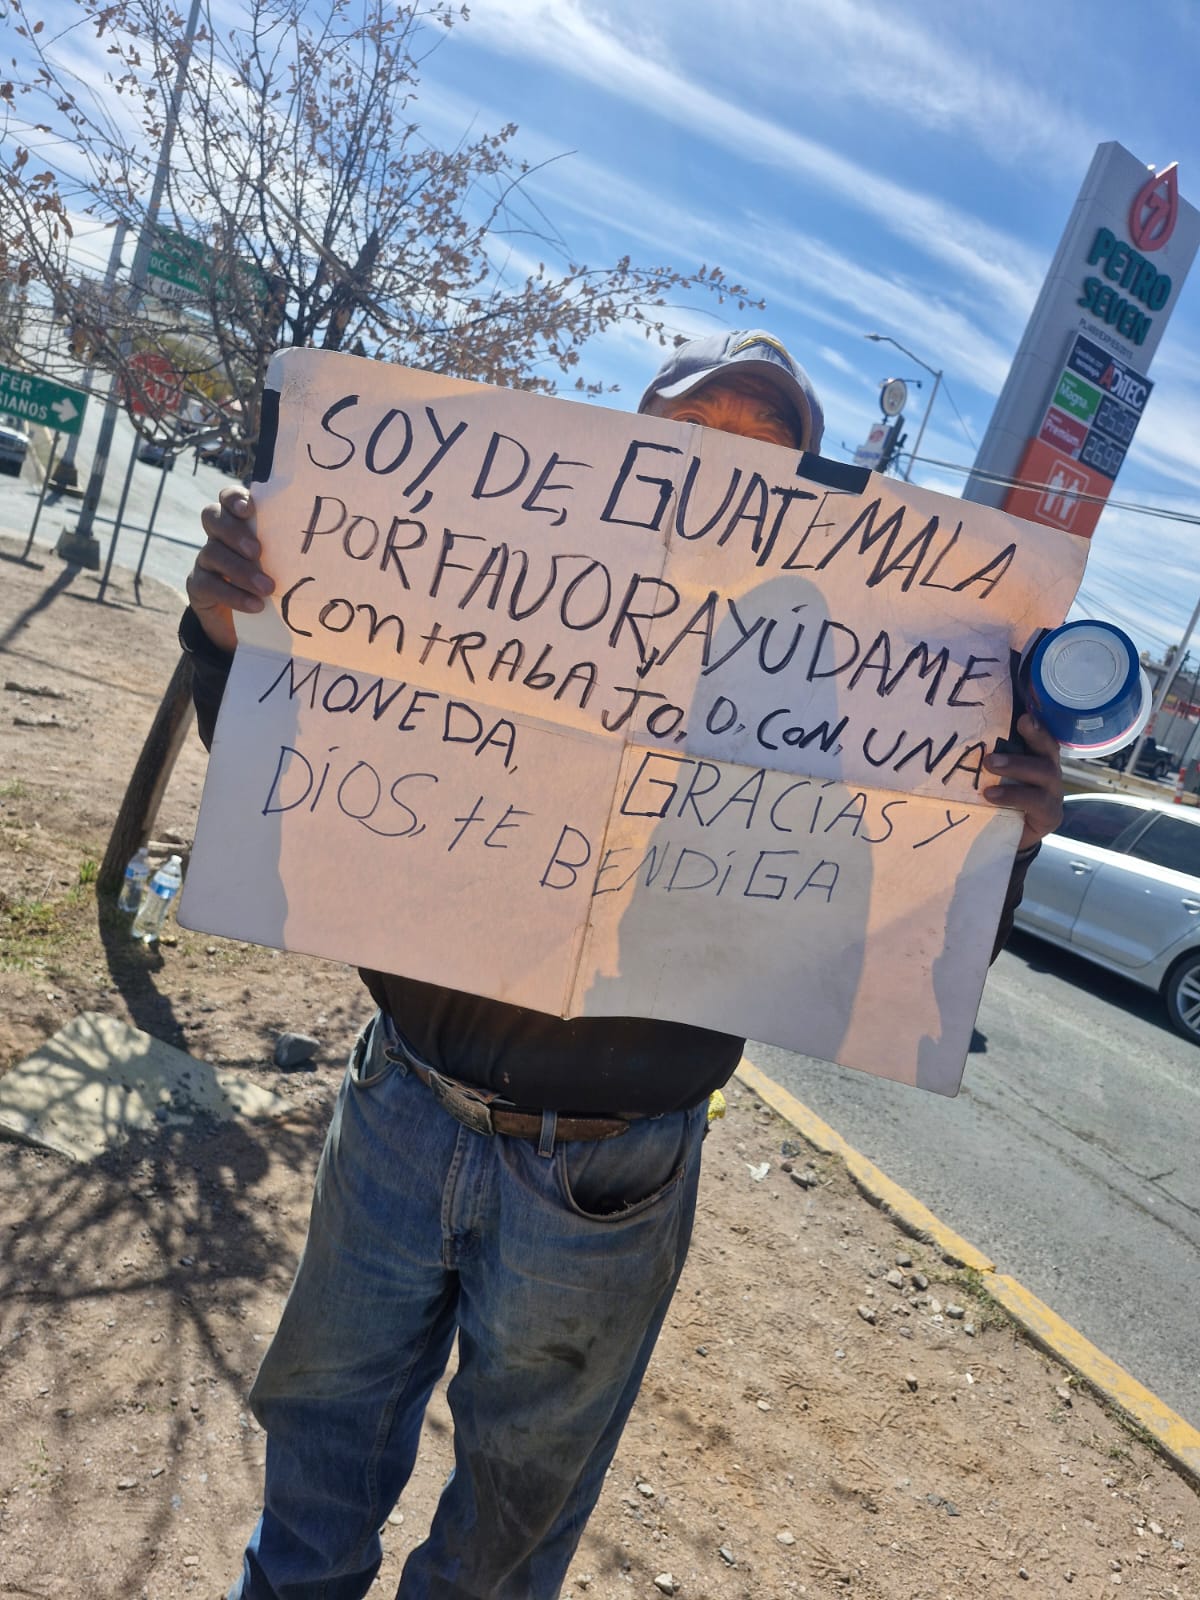 SOY, DE, GUATEMALA
POR FAVOR, AYÚDAME
CON TRABAJO, O, CON, UNA
MONEDA, GRACIAS Y
DIOS, TE BENDIGA
7
PETRO
SEVEN
ADITEC
Magna
Premium
26.99
FER
SIANOS